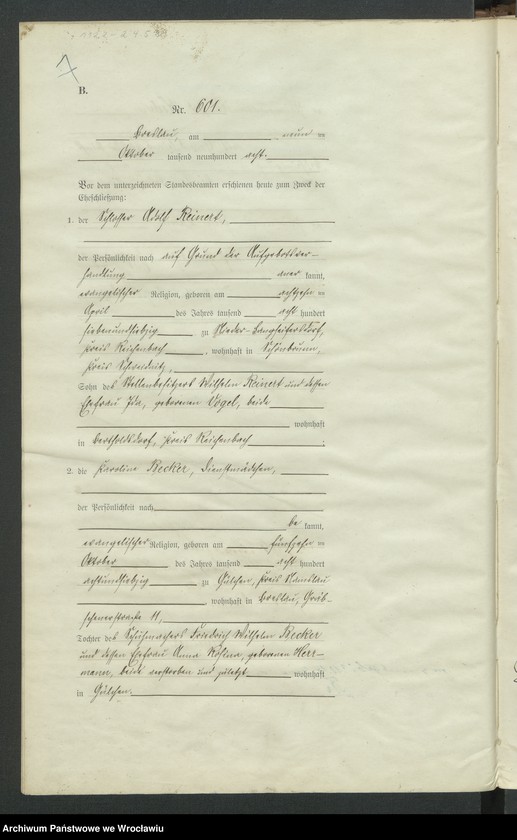 B.
Nr. 601.
Breslau, am neun ten
Oktober tausend neunhundert acht.
Vor dem unterzeichneten Standesbeamten erschienen heute zum Zweck der
Eheschließung:
1. der Schlosser Adolf Reinert,
der Persönlichkeit nach auf Grund der Aufgebotsver-
handlung aner kannt,
evangelischer Religion, geboren am achtzehn ten
April des Jahres tausend acht hundert
siebenundsiebzig zu Nieder-Langseifersdorf,
Kreis Reichenbach, wohnhaft in Schönbrunn,
Kreis Schweidnitz,
Sohn des Stellenbesitzers Wilhelm Reinert und dessen
Ehefrau Ida, geborenen Vogel, beide
wohnhaft
in Bertholdsdorf, Kreis Reichenbach;
2. die Karoline Becker, Dienstmädchen,
der Persönlichkeit nach
be kannt,
evangelischer Religion, geboren am fünfzehn ten
Oktober des Jahres tausend acht hundert
achtundsiebzig zu Gülchen, Kreis Namslau
, wohnhaft in Breslau, Gräb-
schenerstraße 11,
Tochter des Schuhmachers Friedrich Wilhelm Becker
und dessen Ehefrau Anna Rosina, geborenen Herr-
mann, beide verstorben und zuletzt wohnhaft
in Gülchen.
Archiwum Państwowe we Wrocławiu